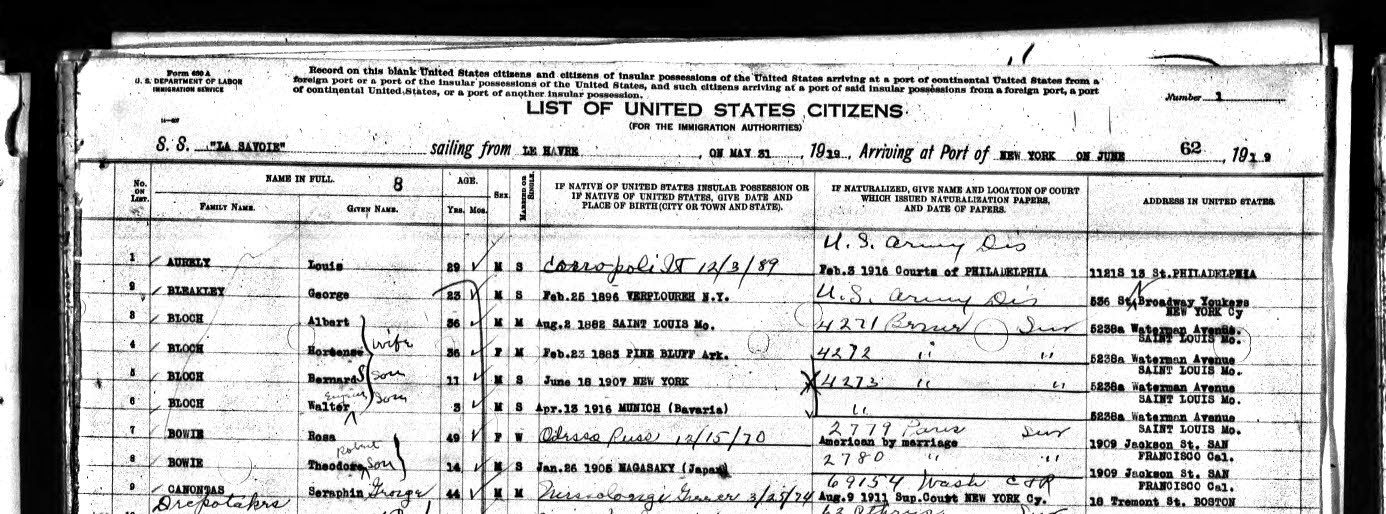 Form 630 A
U. S. DEPARTMENT OF LABOR
IMMIGRATION SERVICE
Record on this blank United States citizens and citizens of insular possessions of the United States arriving at a port of continental United States from a
foreign port or a port of the insular possessions of the United States, and such citizens arriving at a port of said insular possessions from a foreign port, a port
of continental United States, or a port of another insular possession.
Number 1
LIST OF UNITED STATES CITIZENS
(FOR THE IMMIGRATION AUTHORITIES)
S. S. "LA SAVOIE" sailing from LE HAVRE, ON MAY 31, 1919, Arriving at Port of NEW YORK ON JUNE 62, 1919
No. ON LIST. NAME IN FULL. 8 AGE. SEX. MARRIED OR SINGLE. IF NATIVE OF UNITED STATES INSULAR POSSESSION OR IF NATIVE OF UNITED STATES, GIVE DATE AND PLACE OF BIRTH (CITY OR TOWN AND STATE). IF NATURALIZED, GIVE NAME AND LOCATION OF COURT WHICH ISSUED NATURALIZATION PAPERS, AND DATE OF PAPERS. ADDRESS IN UNITED STATES.
FAMILY NAME. GIVEN NAME. Yrs. Mos.
U. S. Army Dis
1 AURELY Louis 29 M S 12/3/89 Feb.3 1916 Courts of PHILADELPHIA 1121S 13 St.PHILADELPHIA
2 BLEAKLEY George 23 M S Feb.25 1896 VERPLOUREH N.Y. U.S. Army Dis 536 St. N Broadway Youkers
NEW YORK Cy
3 BLOCH Albert 36 M M Aug.2 1882 SAINT LOUIS Mo. 4271 5238a Waterman Avenue.
SAINT LOUIS Mo.
4 BLOCH Hortense wife 36 F M Feb.23 1883 PINE BLUFF Ark. 4272 " " 5238a Waterman Avenue
SAINT LOUIS Mo.
5 BLOCH Bernard S son 11 M S June 18 1907 NEW YORK 4273 " " 5238a Waterman Avenue
SAINT LOUIS Mo.
6 BLOCH Walter son 3 M S Apr.13 1916 MUNICH (Bavaria) " 5238a Waterman Avenue
SAINT LOUIS Mo.
2779 Paris
7 BOWIE Rosa 49 F W Odessa Russ 12/15/70 American by marriage 1909 Jackson St. SAN
FRANCISCO Cal.
Robert 2780 " "
8 BOWIE Theodore son 14 M S Jan.26 1905 NAGASAKY (Japan) 1909 Jackson St. SAN
FRANCISCO Cal.
69154 Wash
9 CANONTAS Seraphin George 44 M M 3/25/74 Aug.9 1911 Sup.Court NEW YORK Cy. 18 Tremont St. BOSTON